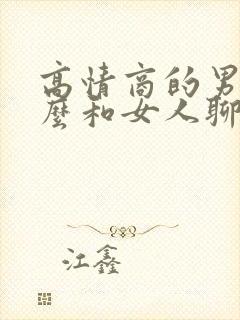 高情商的男
麼和女人聊
江鑫